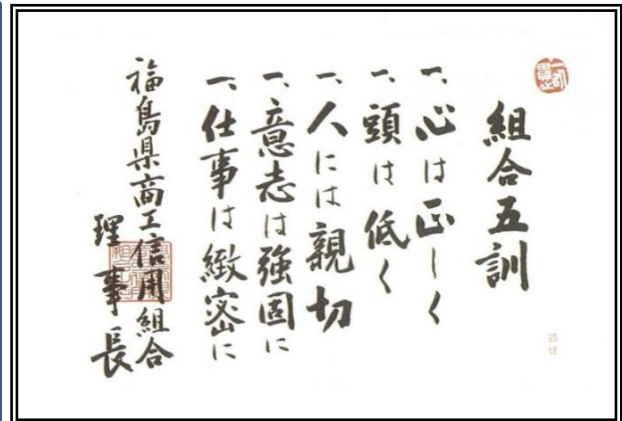 組合五訓
一、心は正しく
一、頭は低く
一、人には親切
一、意志は強固に
一、仕事は緻密に
福島県商工信用組合
理事長